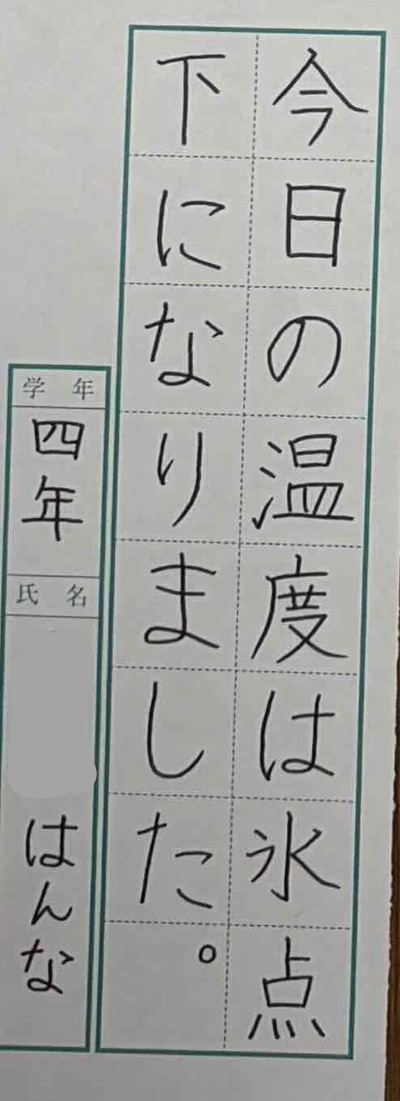 今日の温度は氷点
下になりました。
学年
四年
氏名
はんな